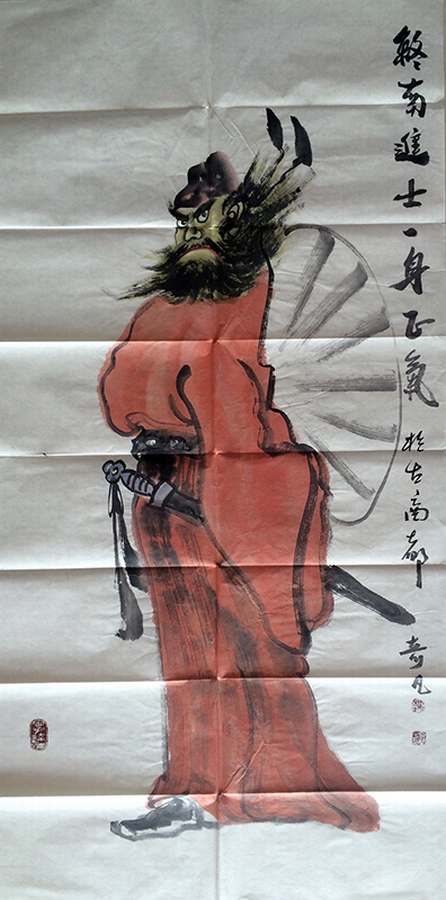 终南進士一身正氣 於古商都 奇凡